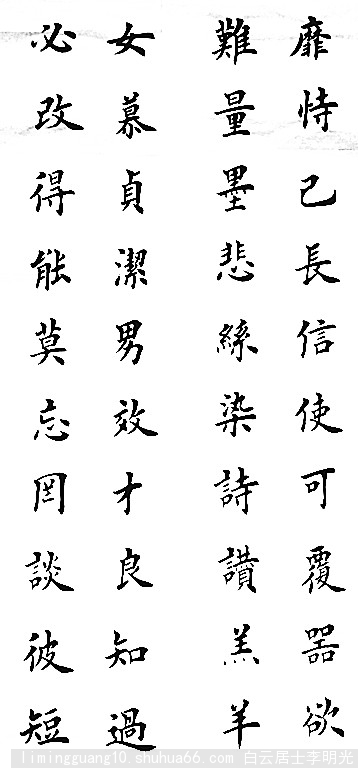 女慕貞潔男效才良知過
必改得能莫忘罔談彼短
靡恃己長信使可覆器欲
難量墨悲絲染詩讃羔羊
limingguang10.shuhua66.com 白云居士李明光